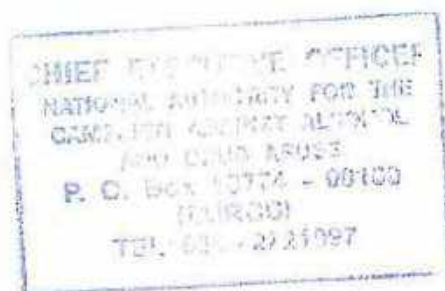 CHIEF EXECUTIVE OFFICER
NATIONAL AUTHORITY FOR THE
CAMPAIGN AGAINST ALCOHOL
AND DRUG ABUSE
P. O. Box 10774 - 00100
NAIROBI
TEL: 2721997